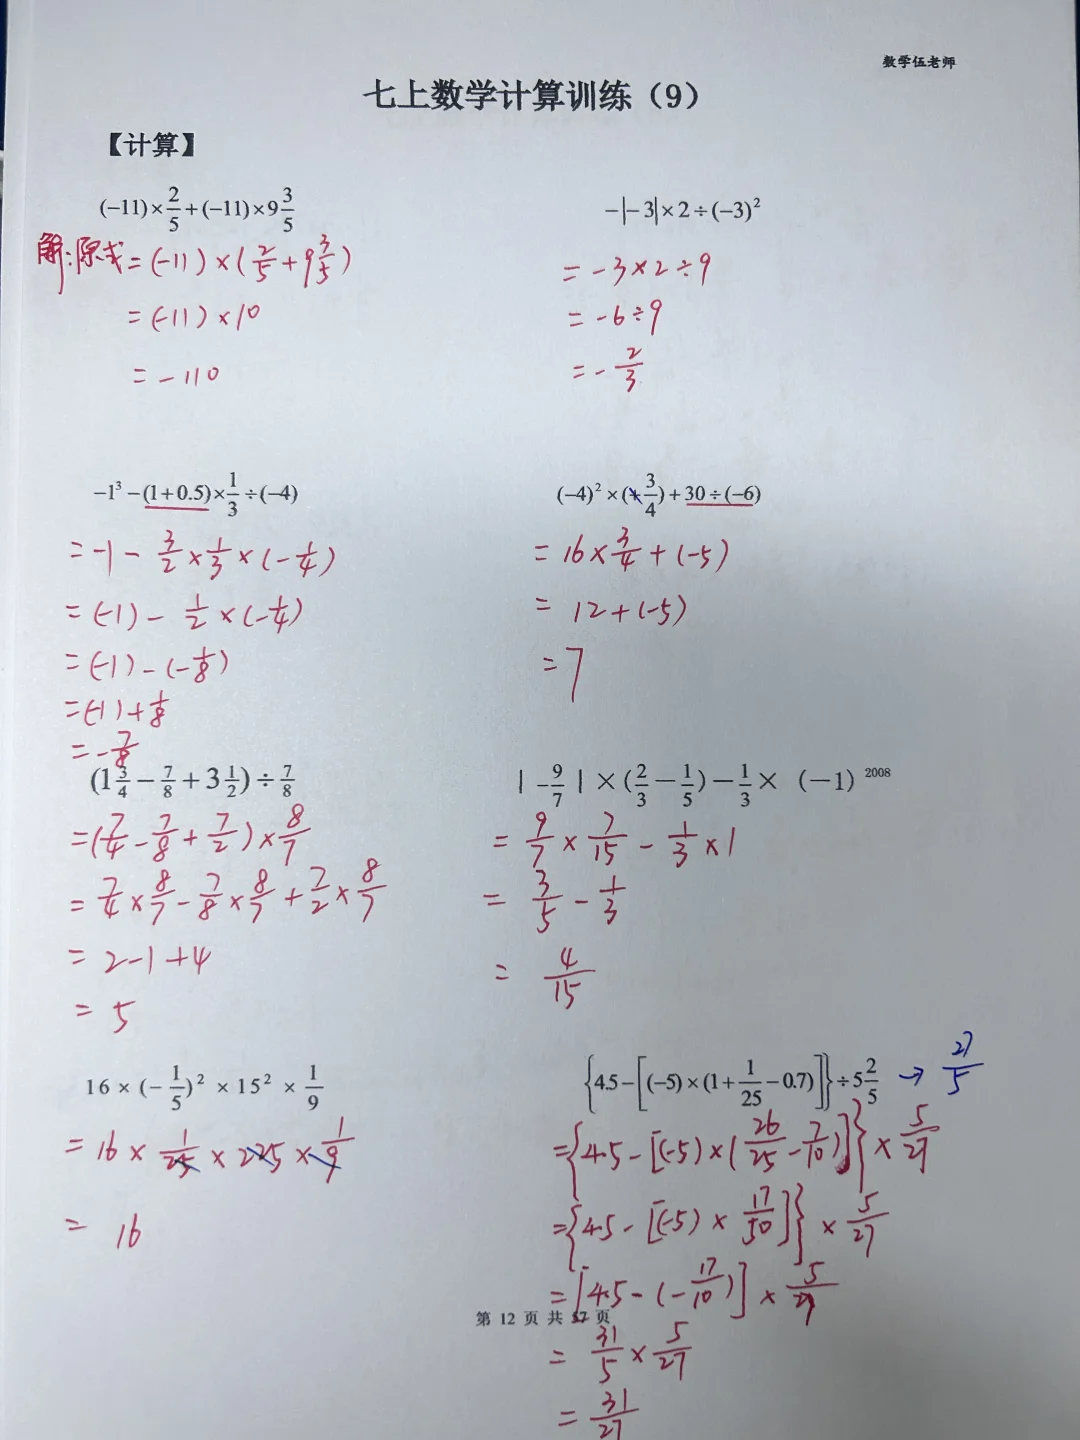 数学伍老师
七上数学计算训练（9）
【计算】
(−11)×2/5+(−11)×9 3/5
解:原式=(-11)×(2/5+9 3/5)
=(-11)×10
=-110
−|−3|×2÷(−3)²
=-3×2÷9
=-6÷9
=-2/3
−1³−(1+0.5)×1/3÷(−4)
=-1-3/2×1/3×(-1/4)
=(-1)-1/2×(-1/4)
=(-1)-(-1/8)
=(-1)+1/8
=-7/8
(−4)²×(3/4)+30÷(−6)
=16×3/4+(-5)
=12+(-5)
=7
(1 3/4−7/8+3 1/2)÷7/8
=(7/4-7/8+7/2)×8/7
=7/4×8/7-7/8×8/7+7/2×8/7
=2-1+4
=5
|−9/7|×(2/3−1/5)−1/3×(−1)²⁰⁰⁸
=9/7×7/15-1/3×1
=3/5-1/3
=4/15
16×(−1/5)²×15²×1/9
=16×1/25×225×1/9
=16
{4.5−[(−5)×(1+1/25−0.7)]}÷5 2/5 → 27/5
={4.5-[(-5)×(26/25-7/10)]}×5/27
={4.5-[(-5)×17/50]}×5/27
=[4.5-(-17/10)]×5/27
=31/5×5/27
=31/27
第 12 页 共 57 页